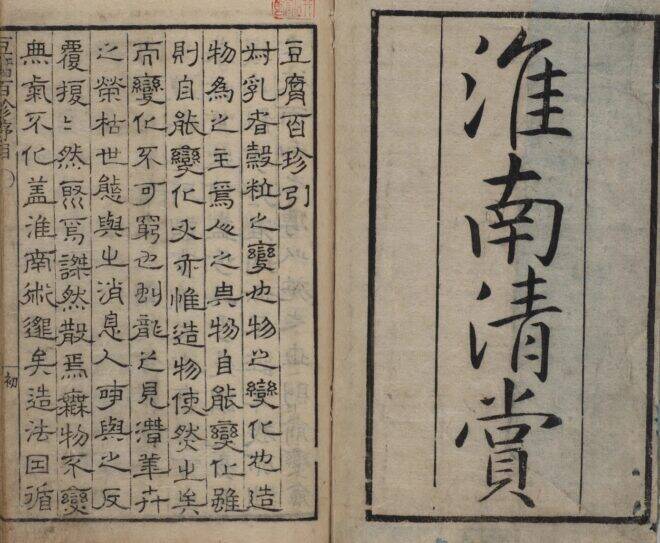 淮南清賞
豆腐百珍引
乳者穀粒之變也物之變化也造
物為之主焉之與物自能變化雖
則自能變化夫亦惟造物使然也矣
而變化不可窮也矧龍之見潛草卉
之榮枯世態與之消息人事與之反
覆擾〻然焉然散焉無物不變
無氣不化蓋淮南術邃矣造法因循
豆腐百珍序目
初